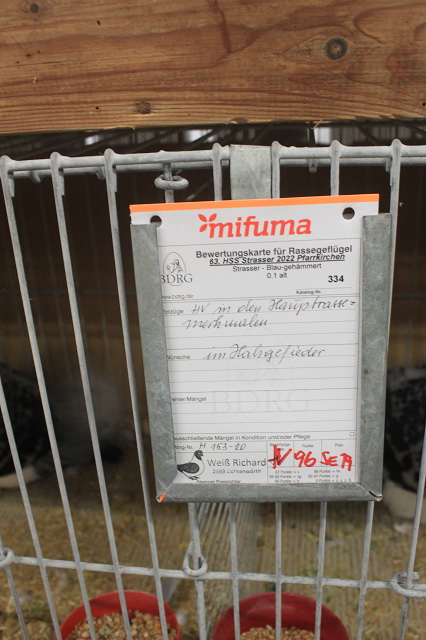 mifuma
Bewertungskarte für Rassegeflügel
63. HSS Strasser 2022 Pfarrkirchen
BDRG
Strasser - Blau-gehämmert
0.1 alt
334
Katalog-Nr.
www.bdrg.de
Vorzüge HV in den Hauptrasse=
merkmalen
Wünsche im Halsgefieder
Fehler/Mängel
Ausschließende Mängel in Kondition und/oder Pflege
Ring-Nr. H 153-20
Weiß Richard
HV 96 SE